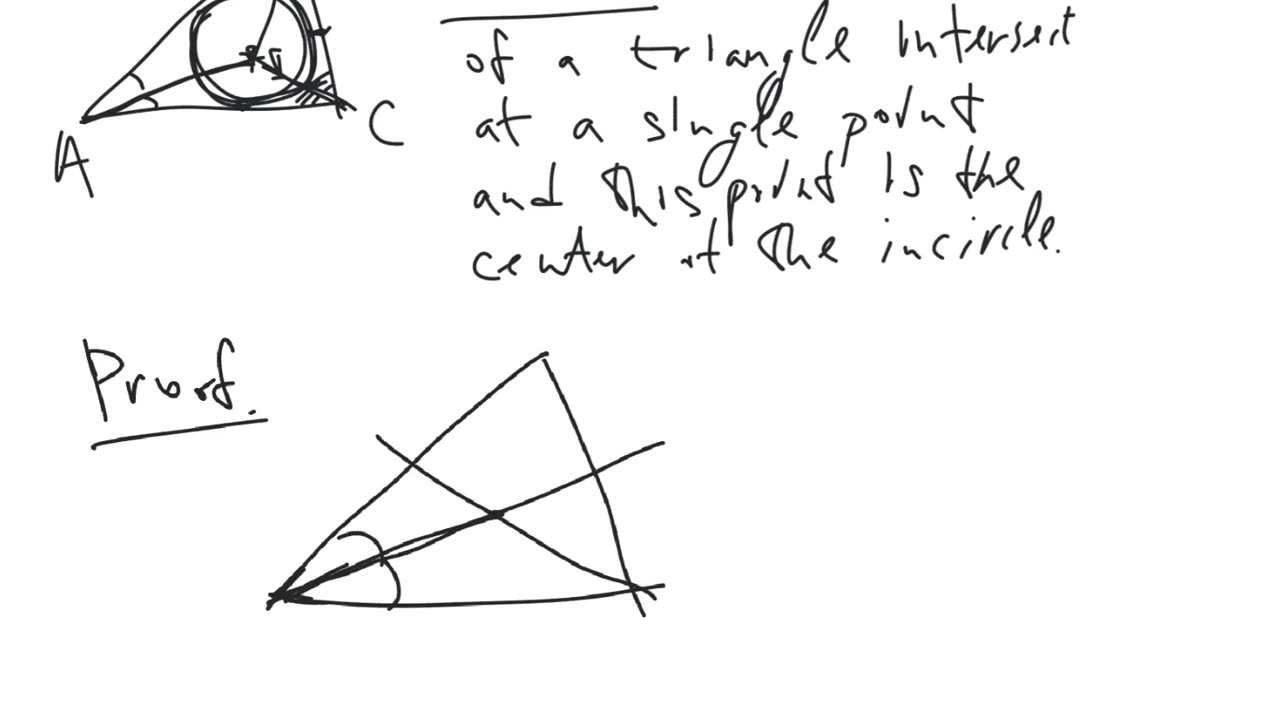 of a triangle intersect
at a single point
A C
and this point is the
center of the incircle.
Proof.